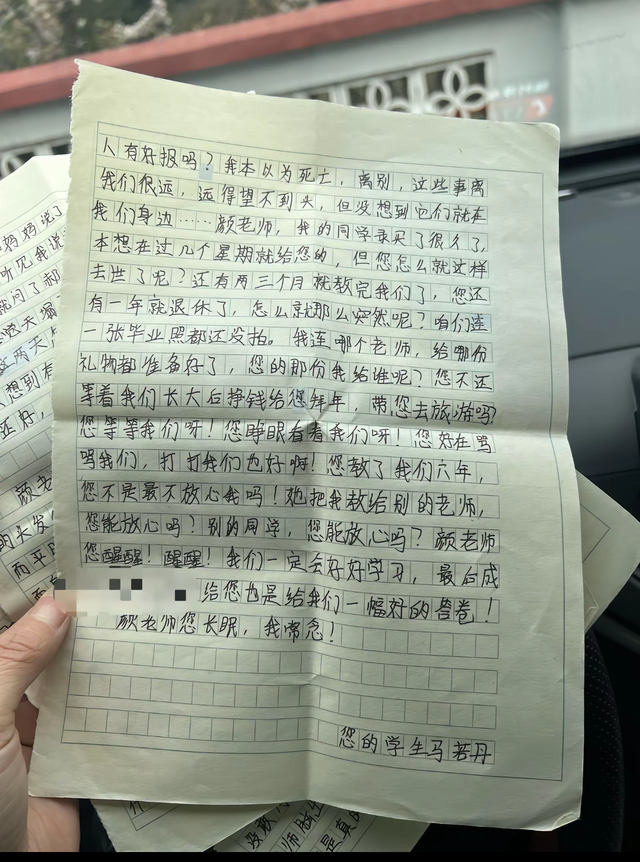 人有好报吗？我本以为死亡，离别，这些事离
我们很远，远得望不到头，但没想到它们就在
我们身边……颜老师，我的同学录买了很久了，
本想在过几个星期就给您的，但您怎么就这样
去世了呢？还有两三个月就教完我们了，您还
有一年就退休了，怎么就那么突然呢？咱们连
一张毕业照都还没拍。我连哪个老师，给哪份
礼物都准备好了，您的那份我给谁呢？您不还
等着我们长大后挣钱给您拜年，带您去旅游吗？
您等等我们呀！您睁眼看看我们呀！您好在骂
骂我们，打打我们也好啊！您教了我们六年，
您不是最不放心我吗！她把我教给别的老师，
您能放心吗？别的同学，您能放心吗？颜老师
您醒醒！醒醒！我们一定会好好学习，最后成
给您也是给我们一幅好的答卷！
颜老师您长眠，我常念！
您的学生马若丹
妈妈说了
听见我说
就问了郝
这两天
想到有
还好，
颜老
的头发
而平
是真的